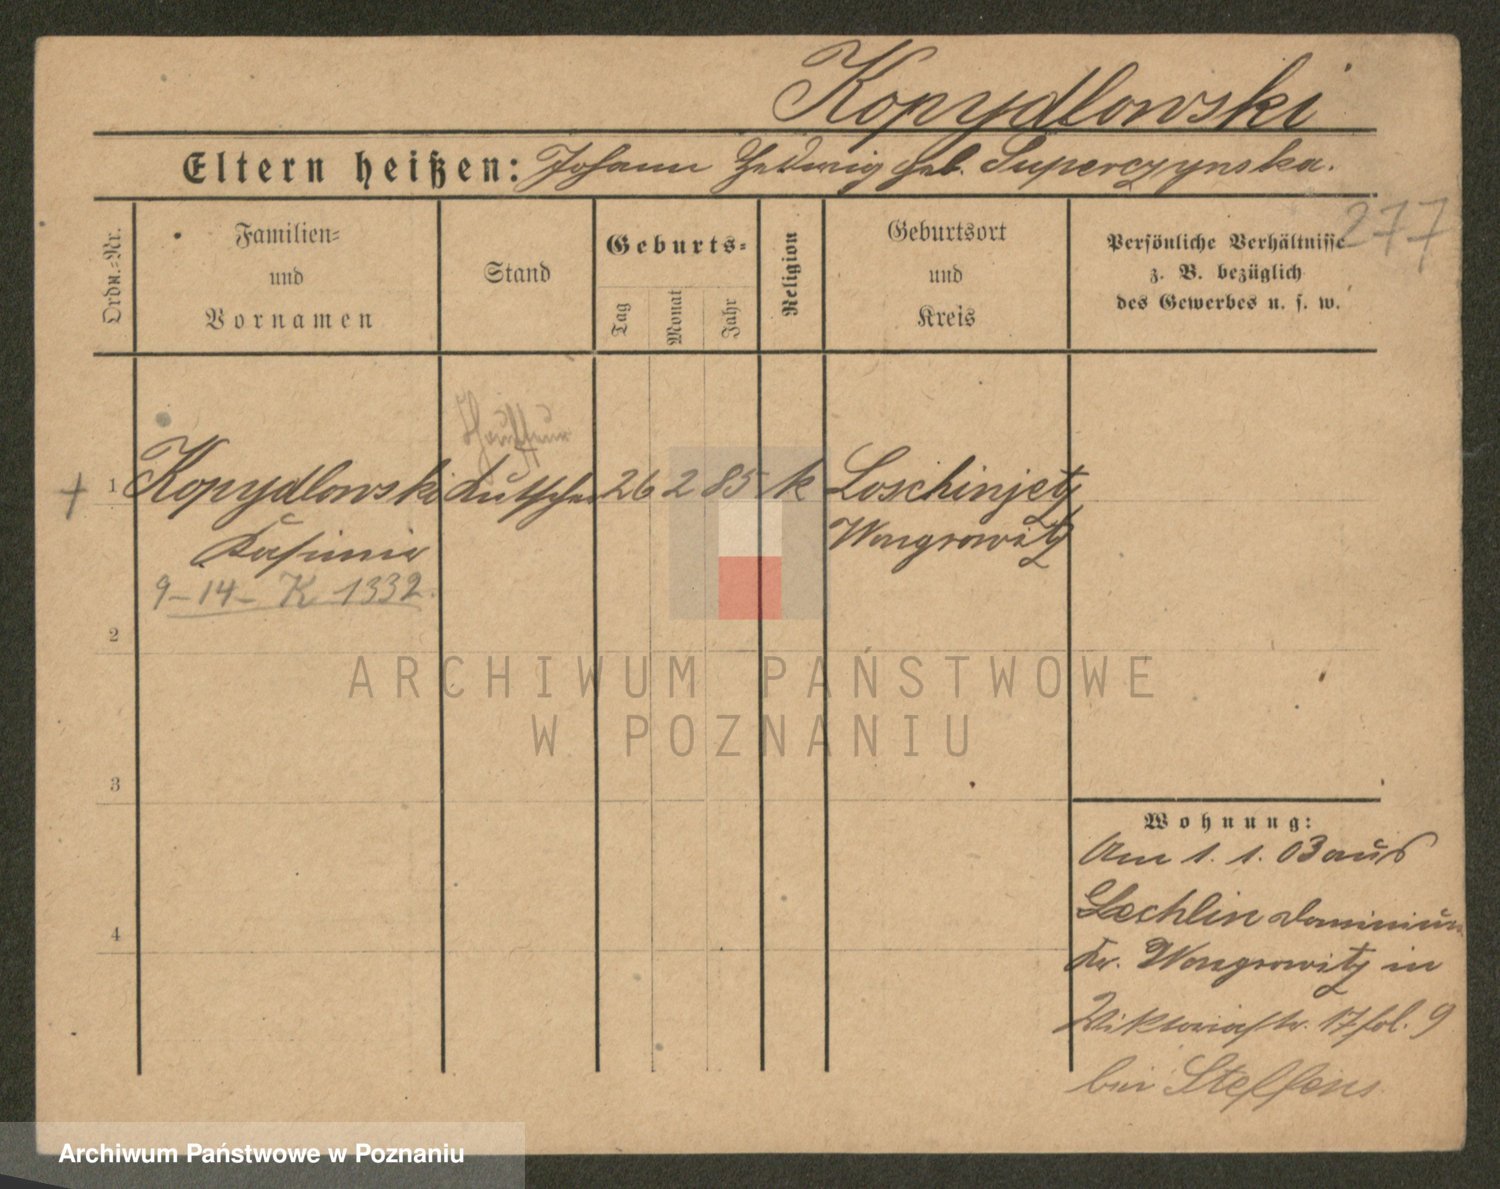 Kopydlowski
Eltern heißen: Johann Hedwig geb. Superczynska.
277
Ordn.-Nr.
Familien-
und
Vornamen
Stand
Geburts-
Tag
Monat
Jahr
Religion
Geburtsort
und
Kreis
Persönliche Verhältnisse
z. B. bezüglich
des Gewerbes u. s. w.
Chauffeur
+ 1 Kopydlowski Kutscher 26 2 85 k Loschinjetz
Kasimir Wongrowitz
9-14- K 1332.
2
3
4
Wohnung:
Am 1. 1. 03 aus
Lechlin Dominium
Kr. Wongrowitz in
Viktoriastr. 17 fol. 9
bei Steffens
ARCHIWUM PAŃSTWOWE
W POZNANIU
Archiwum Państwowe w Poznaniu